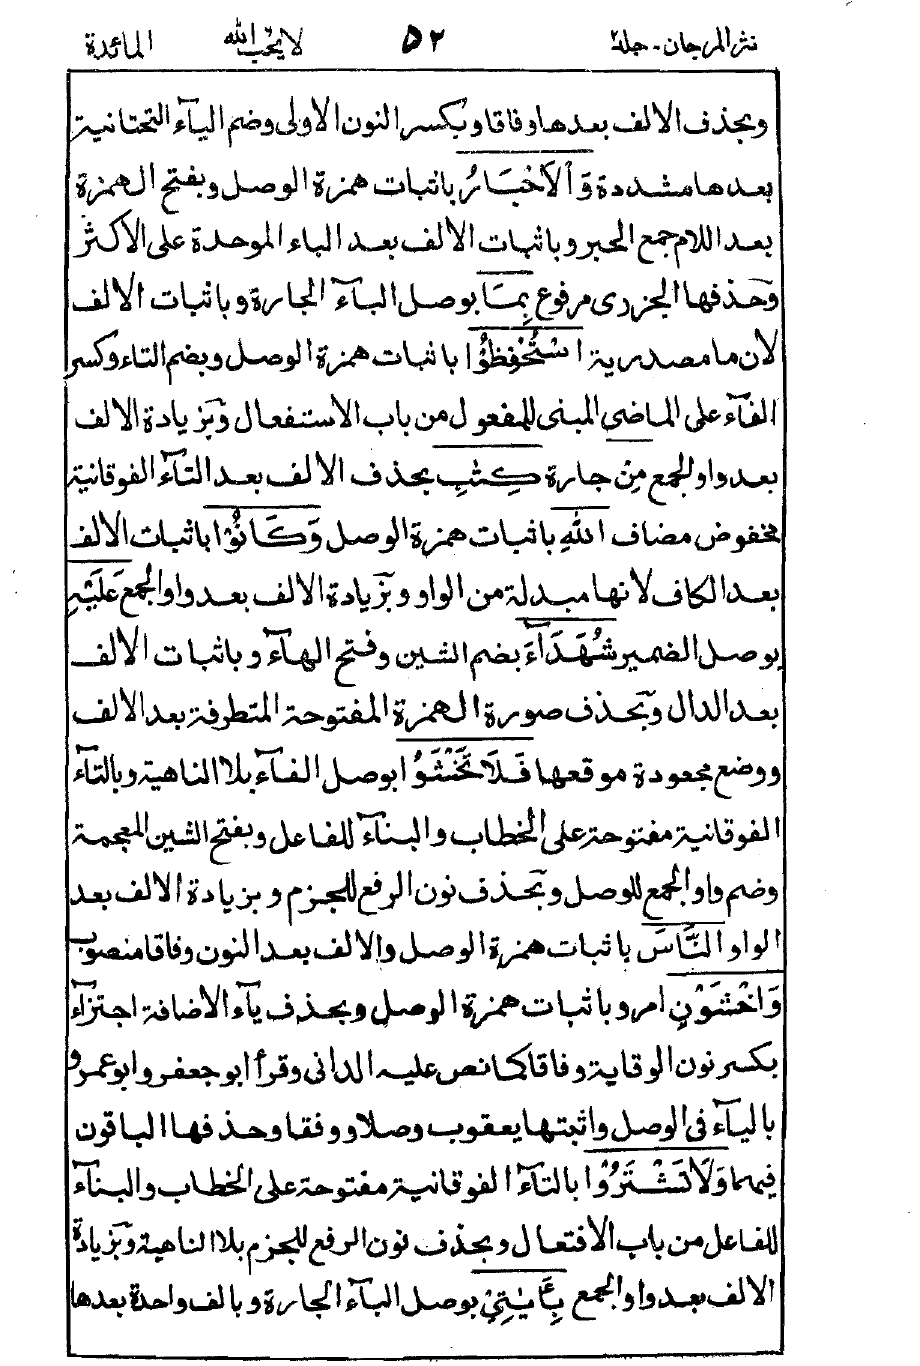 نثر المرجان - جلد٢ ٥٢ لا يحب الله المائدة
وبحذف الالف بعدها وفاقا وبكسر النون الاولى وضم اليآء التحتانية
بعدها مشددة وَالْاَحْبَارُ باثبات همزة الوصل وبفتح الهمزة
بعد اللام جمع الحبر وباثبات الالف بعد الباء الموحدة على الاكثر
وحذفها الجزرى مرفوع بِمَا بوصل البآء الجارة وباثبات الالف
لان ما مصدرية اسْتُحْفِظُوْا باثبات همزة الوصل وبضم التاء وكسر
الفآء على الماضى المبنى للمفعول من باب الاستفعال وبزيادة الالف
بعد واو الجمع مِنْ جارة كِتٰبِ بحذف الالف بعد التآء الفوقانية
مخفوض مضاف اللهِ باثبات همزة الوصل وَكَانُوْا باثبات الالف
بعد الكاف لانها مبدلة من الواو وبزيادة الالف بعد واو الجمع عَلَيْهِ
بوصل الضمير شُهَدَآءَ بضم الشين وفتح الهآء وباثبات الالف
بعد الدال وبحذف صورة الهمزة المفتوحة المتطرفة بعد الالف
ووضع مجعودة موقعها فَلَا تَخْشَوُا بوصل الفآء بلا الناهية وبالتآء
الفوقانية مفتوحة على الخطاب والبنآء للفاعل وبفتح الشين المعجمة
وضم واو الجمع للوصل وبحذف نون الرفع للجزم وبزيادة الالف بعد
الواو النَّاسَ باثبات همزة الوصل والالف بعد النون وفاقا منصوب
وَاخْشَوْنِ امر وباثبات همزة الوصل وبحذف يآء الاضافة اجتزاء
بكسر نون الوقاية وفاقا كما نص عليه الدانى وقرأ ابو جعفر وابو عمرو
باليآء فى الوصل واثبتها يعقوب وصلا ووقفا وحذفها الباقون
فيهما وَلَا تَشْتَرُوْا بالتآء الفوقانية مفتوحة على الخطاب والبنآء
للفاعل من باب الافتعال وبحذف نون الرفع للجزم بلا الناهية وبزيادة
الالف بعد واو الجمع بِاٰيٰتِىْ بوصل البآء الجارة وبالف واحدة بعدها